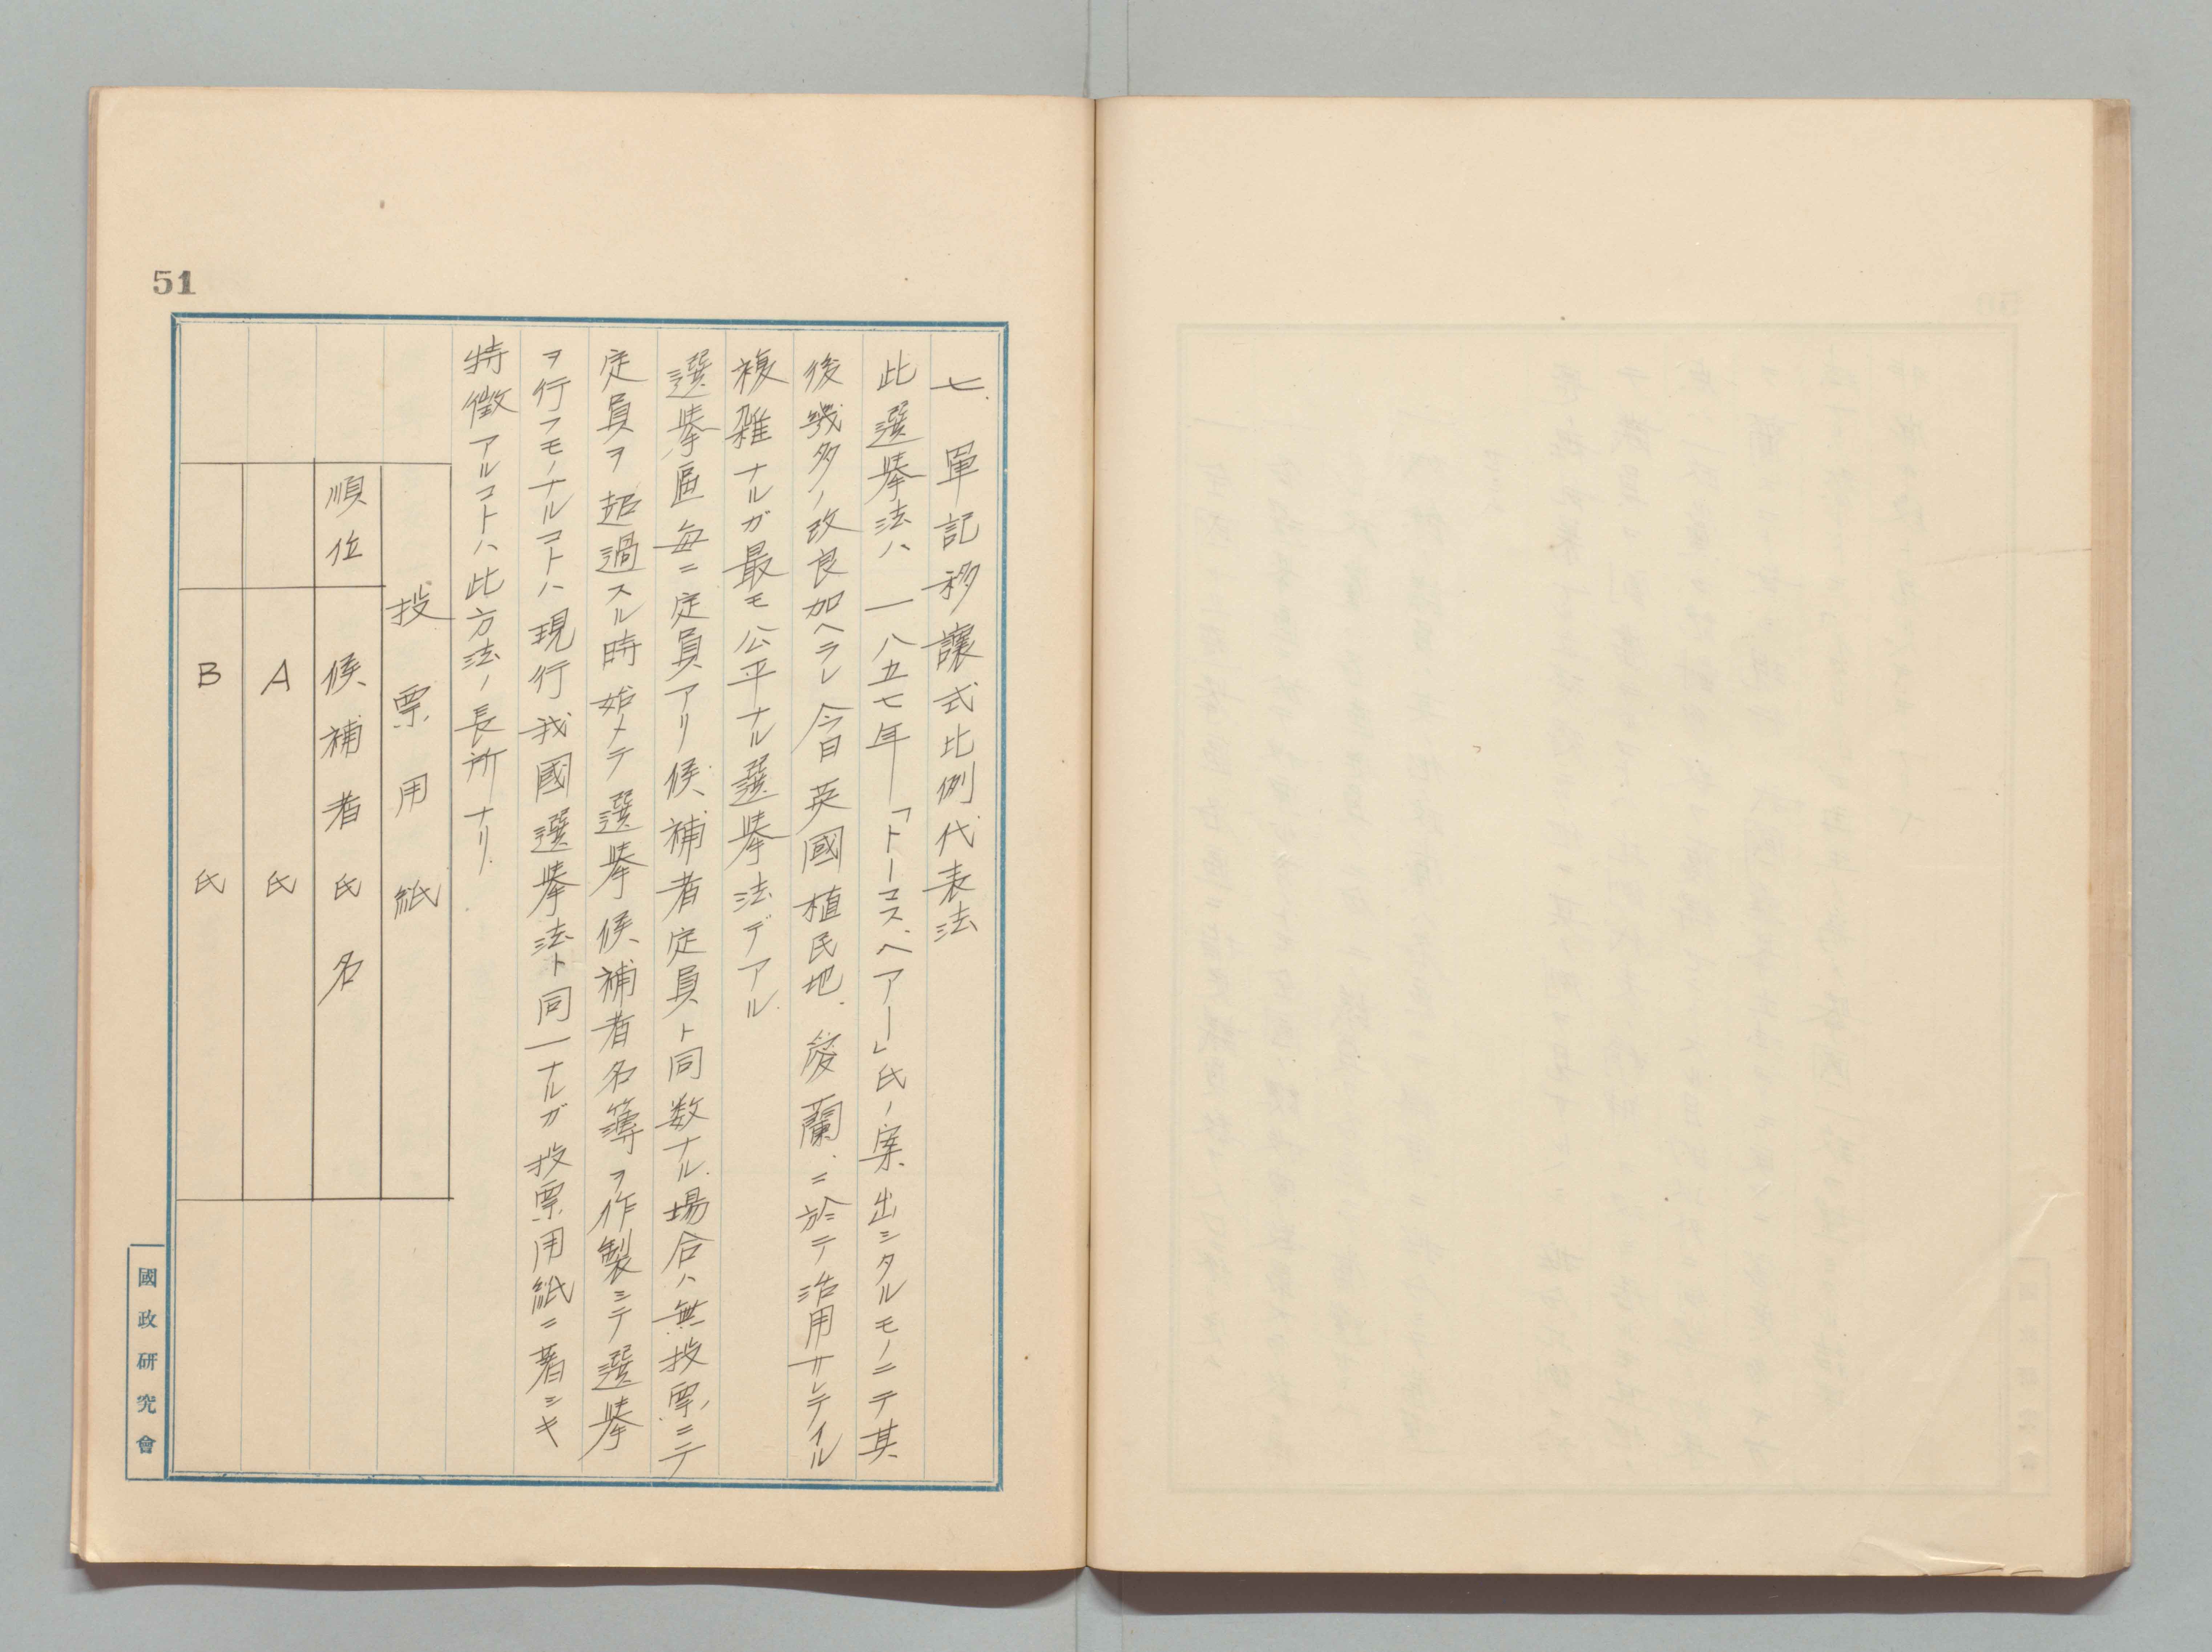 51
七、單記移讓式比例代表法
此選擧法ハ一八五七年「トーマス、ヘアー」氏ノ案出シタルモノニテ其
後幾多ノ改良加ヘラレ今日英國植民地、愛蘭、ニ於テ活用サレテイル
複雑ナルガ最モ公平ナル選擧法デアル
選擧區毎ニ定員アリ候補者定員ト同数ナル場合ハ無投票ニテ
定員ヲ超過スル時始メテ選擧候補者名簿ヲ作製シテ選擧
ヲ行フモノナルコトハ現行我國選擧法ト同一ナルガ投票用紙ニ著シキ
特徴アルコトハ此方法ノ長所ナリ.
投票用紙
順位 候補者氏名
A 氏
B 氏
國政研究會